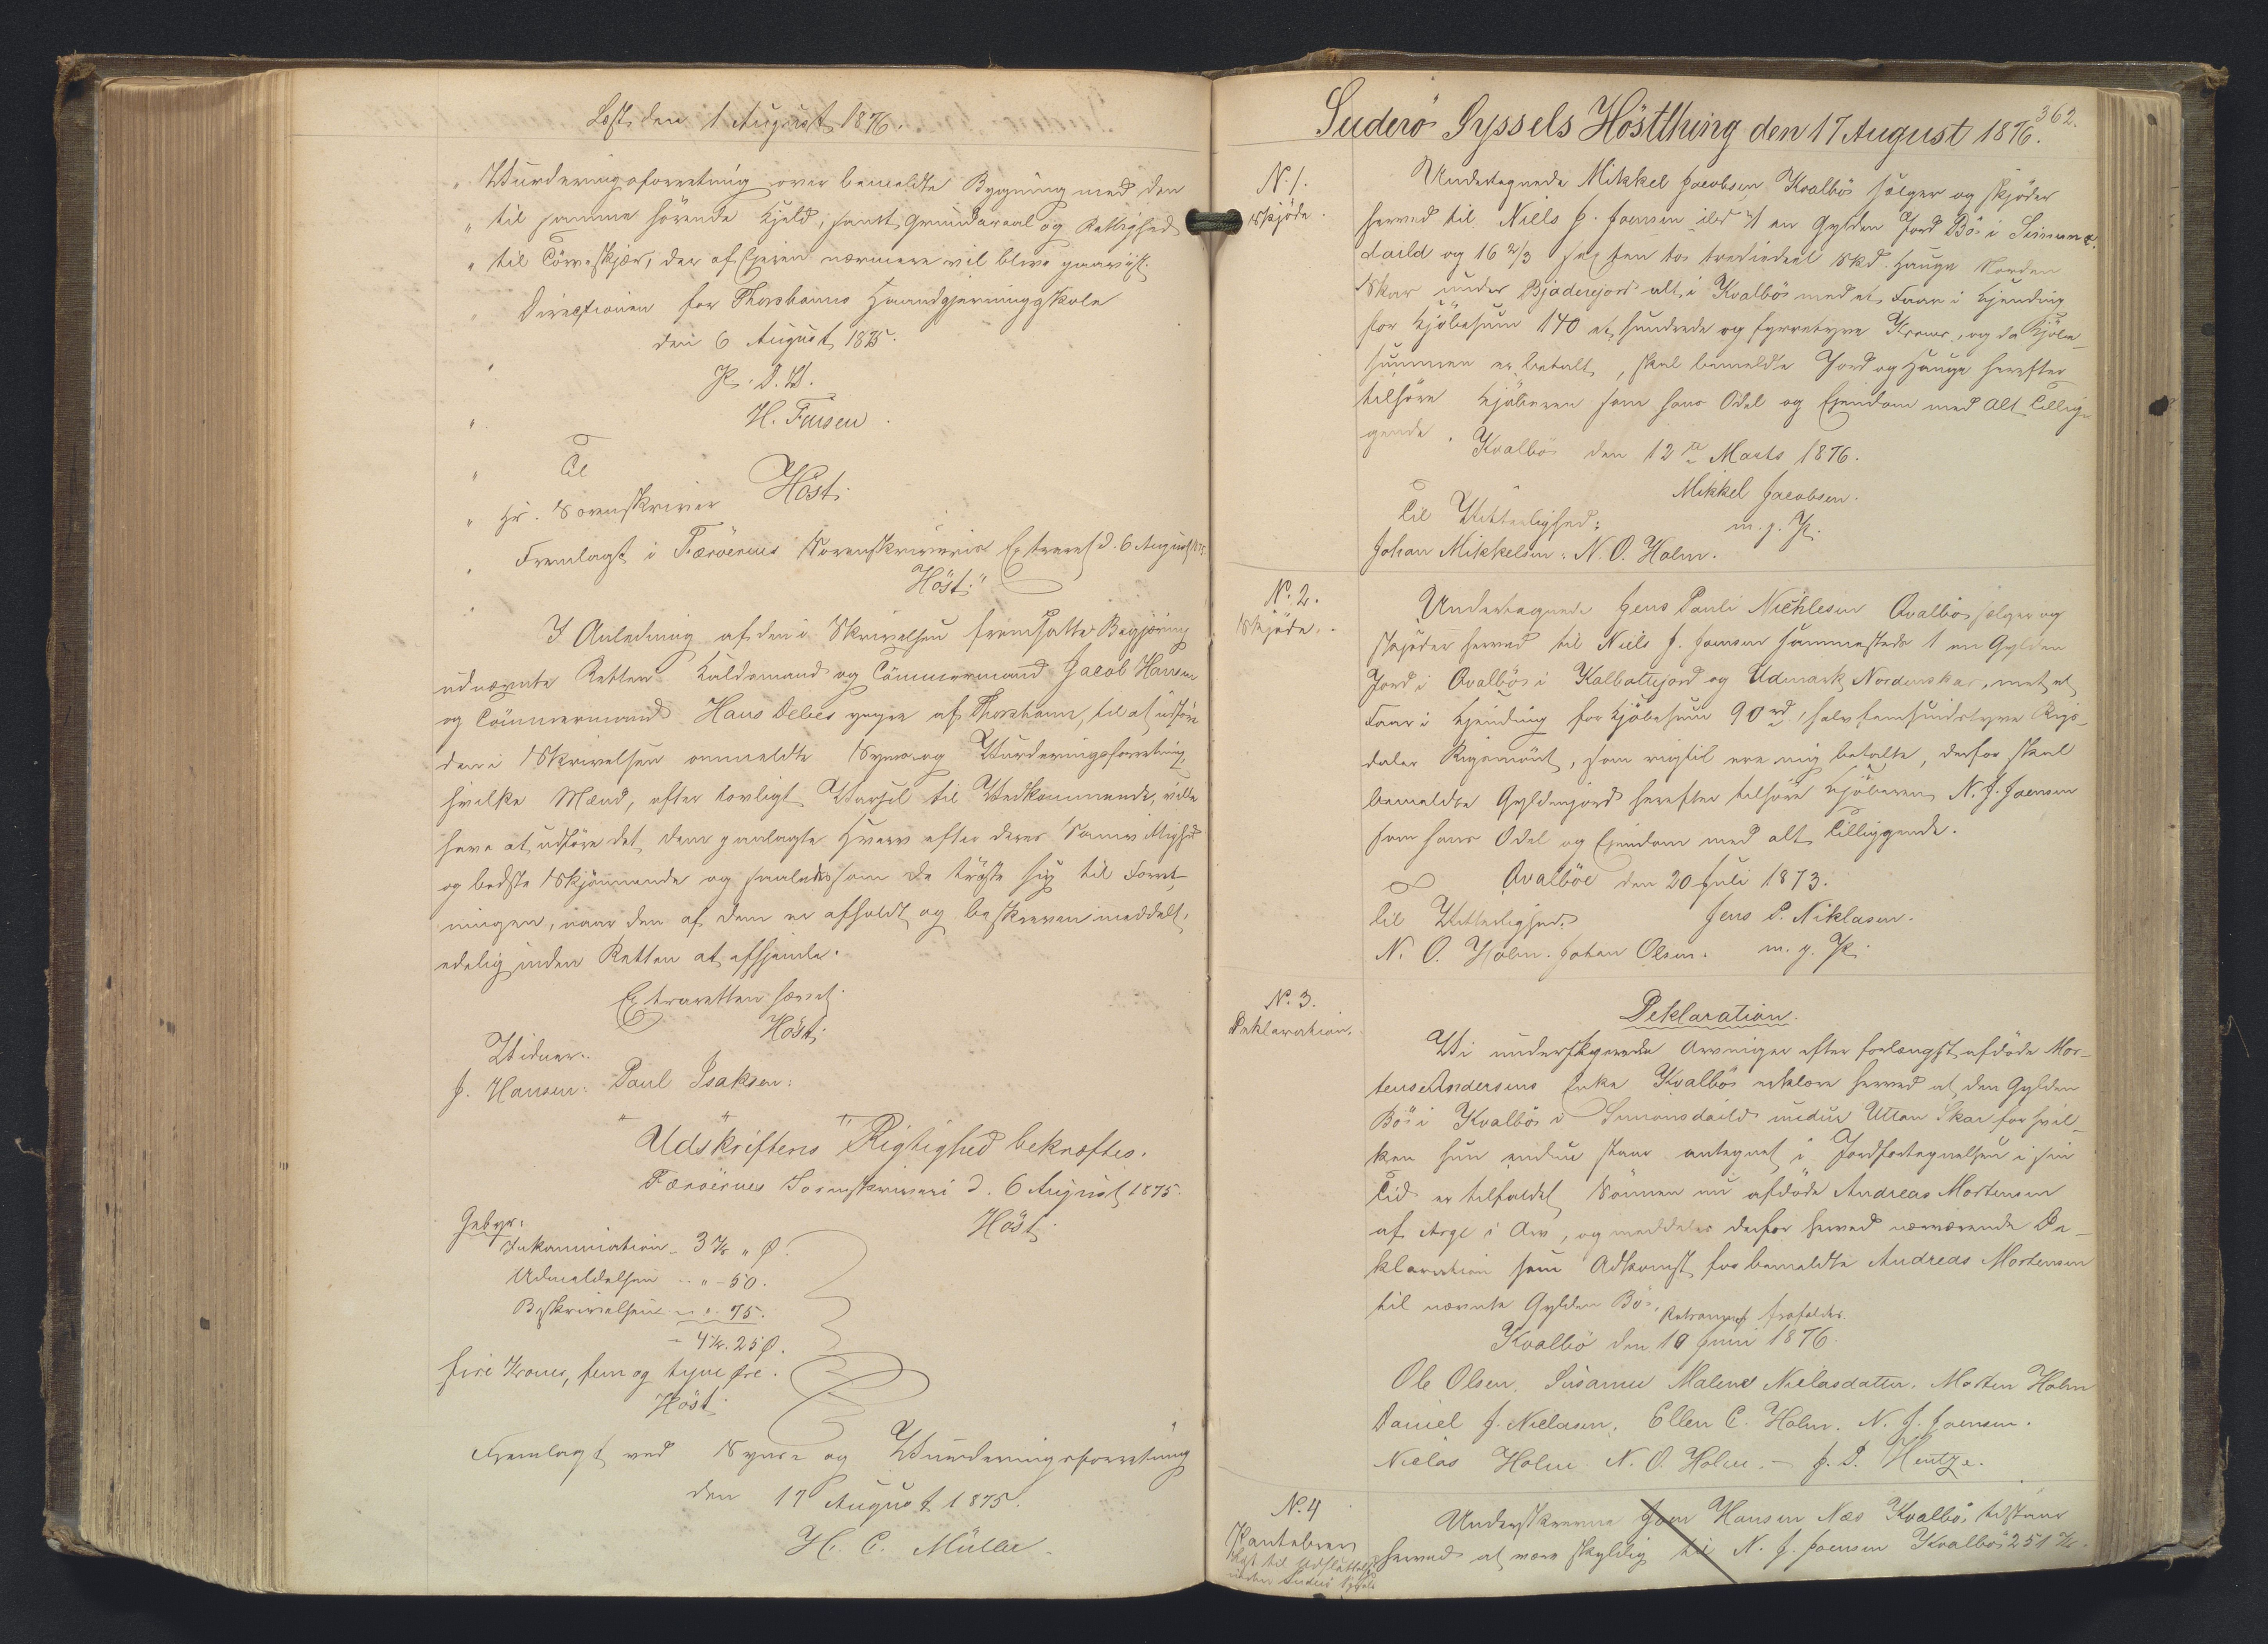 Læst den 1 August 1876.
" Vurderingsforretning over bemeldte Bygning med den
" til samme hörende Kjeld, samt Grundareal og Rettighed
" til Törveskjær, der af Ejeren nærmere vil blive paaviist.
" Directionen for Thorshavns Haandgjerningsskole
den 6 August 1875.
" P. D. V.
" H. Finsen.
" Til
" Hr. Sorenskriver Höst.
" Fremlagt i Færöernes Sorenskriveries Extraret d. 6 August 1875.
" Höst."
I Anledning af den i Skrivelsen fremsatte Begjæring
udnævnte Retten Kuldsmand og Tömmermand Jacob Hansen
og Tömmermand Hans Debes yngre af Thorshavn, til at udföre
den i Skrivelsen ommeldte Syns- og Vurderingsforretning,
hvilke Mænd, efter lovligt Varsel til Vedkommende, ville
have at udföre det dem paalagte Hverv efter deres Samvittighed
og bedste Skjönnende og saaledes som de tröste sig til Forret-
ningen, naar den af dem er afholdt og beskreven meddelt,
edelig inden Retten at afhjemle.
Extraretten hævet.
Höst.
Vidner:
J. Hansen: Paul Isaksen:
Udskriftens Rigtighed bekræftes.
Færöernes Sorenskriveri d. 6 August 1875.
Höst.
Gebyr:
Inkamination 3 Kr " Ø.
Udmeldelsen " - 50.
Beskrivelsen " - 75.
4 Kr. 25 Ø.
fire Kroner, fem og tyve Øre.
Höst.
Fremlagt ved Syns- og Vurderingsforretning
den 17 August 1875.
H. C. Müller
362.
Suderö Syssels Höstthing den 17 August 1876.
N. 1.
Skjöde.
Undertegnede Mikkel Jacobsen Kvalbö sælger og skjöder
herved til Niels J. Joensen ibd 1 en Gylden Jord Bö i Simuns
daild og 16 2/3 sexten to trediedeel Skd. Hauge Norden
Skar under Bjaderejord alt i Kvalbö med et Faar i Hjending
for Kjöbesum 140 et hundrede og fyrretyve Kroner, og da Kjöbe-
summen er betalt, skal bemeldte Jord og Hauge herefter
tilhöre Kjöberen som hans Odel og Ejendom med alt Tillig-
gende. Kvalbö den 12te Marts 1876.
Mikkel Jacobsen.
Til Vitterlighed: m. g. P.
Johan Mikkelsen: N. O. Holm.
N. 2.
Skjöde.
Undertegnede Jens Pauli Nichlesen Qvalbö sælger og
skjöder herved til Niels J. Joensen sammesteds 1 en Gylden
Jord i Qvalbö i Kalbattejord og Udmark Nordenskar, met et
Faar i Hjending for Kjöbesum 90 rd, halvfemsindstyve Rigs-
daler Rigsmönt, som rigtil ere mig betalte, derfor skal
bemeldte Gyldenjord herefter tilhöre Kjöberen N. J. Joensen
som hans Odel og Ejendom med alt Tilliggende.
Qvalböe den 20 Juli 1873.
Til Vitterlighed: Jens P. Niklasen.
N. O. Holm. Johan Olsen. m. g. P.
N. 3.
Deklaration.
Deklaration.
Vi underskrevne Arvinger efter forlængst afdöde Mor-
tense Andersens Enke Kvalbö erklære herved at den Gylden
Bö i Kvalbö i Simonsdaild under Uttan Skar for hvil-
ken hun endnu staar antegnet i Jordfortegnelsen i sin
Tid er tilfaldet Sönnen nu afdöde Andreas Mortensen
af Arge i Arv, og meddeles derfor herved nærværende De-
klaration som Adkomst for bemeldte Andreas Mortensen
til nævnte Gylden Bö.
Kvalbö den 10 Juni 1876.
Ole Olsen. Susanne Malene Nielasdatter. Morten Holm
Daniel J. Nielasen. Ellen C. Holm. N. J. Joensen.
Nielas Holm. N. O. Holm. - J. P. Hentze.
N. 4
Pantebrev
lyst til Udslettelse
Suderö Syssels
Underskrevne Joen Hansen Næs Kvalbö, tilstaar
herved at være skyldig til N. J. Joensen Kvalbö 251 Kr.